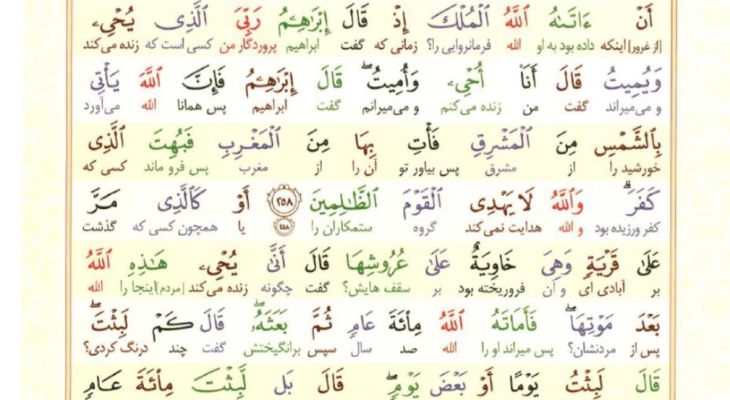 أَنْ ءَاتَىٰهُ ٱللَّهُ ٱلْمُلْكَ إِذْ قَالَ إِبْرَٰهِـۧمُ رَبِّىَ ٱلَّذِى يُحْىِۦ
[از غرور] اینکه داده بود به او الله فرمانروایی را؟ زمانی که گفت ابراهیم پروردگار من کسی است که زنده می کند
وَيُمِيتُ قَالَ أَنَا۠ أُحْىِۦ وَأُمِيتُ ۖ قَالَ إِبْرَٰهِـۧمُ فَإِنَّ ٱللَّهَ يَأْتِى
و می‌میراند گفت من زنده می‌کنم و می‌میرانم گفت ابراهیم پس همانا الله می‌آورد
بِٱلشَّمْسِ مِنَ ٱلْمَشْرِقِ فَأْتِ بِهَا مِنَ ٱلْمَغْرِبِ فَبُهِتَ ٱلَّذِى
خورشید را از مشرق پس بیاور تو آن را از مغرب پس فرو ماند کسی که
كَفَرَ ۗ وَٱللَّهُ لَا يَهْدِى ٱلْقَوْمَ ٱلظَّٰلِمِينَ ٢٥٨ أَوْ كَٱلَّذِى مَرَّ
کفر ورزیده بود و الله هدایت نمی کند گروه ستمکاران را ۲۵۸ یا همچون کسی که گذشت
عَلَىٰ قَرْيَةٍ وَهِىَ خَاوِيَةٌ عَلَىٰ عُرُوشِهَا قَالَ أَنَّىٰ يُحْىِۦ هَٰذِهِ ٱللَّهُ
بر آبادی ای و آن فروریخته بود بر سقف هایش؟ گفت چگونه زنده می کند [مردم] اینجا را الله
بَعْدَ مَوْتِهَا ۖ فَأَمَاتَهُ ٱللَّهُ مِا۟ئَةَ عَامٍ ثُمَّ بَعَثَهُۥ ۖ قَالَ كَمْ لَبِثْتَ ۖ
پس از مردنشان؟ پس میراند او را الله صد سال سپس برانگیختش گفت چند درنگ کردی؟
قَالَ لَبِثْتُ يَوْمًا أَوْ بَعْضَ يَوْمٍ ۖ قَالَ بَل لَّبِثْتَ مِا۟ئَةَ عَامٍ